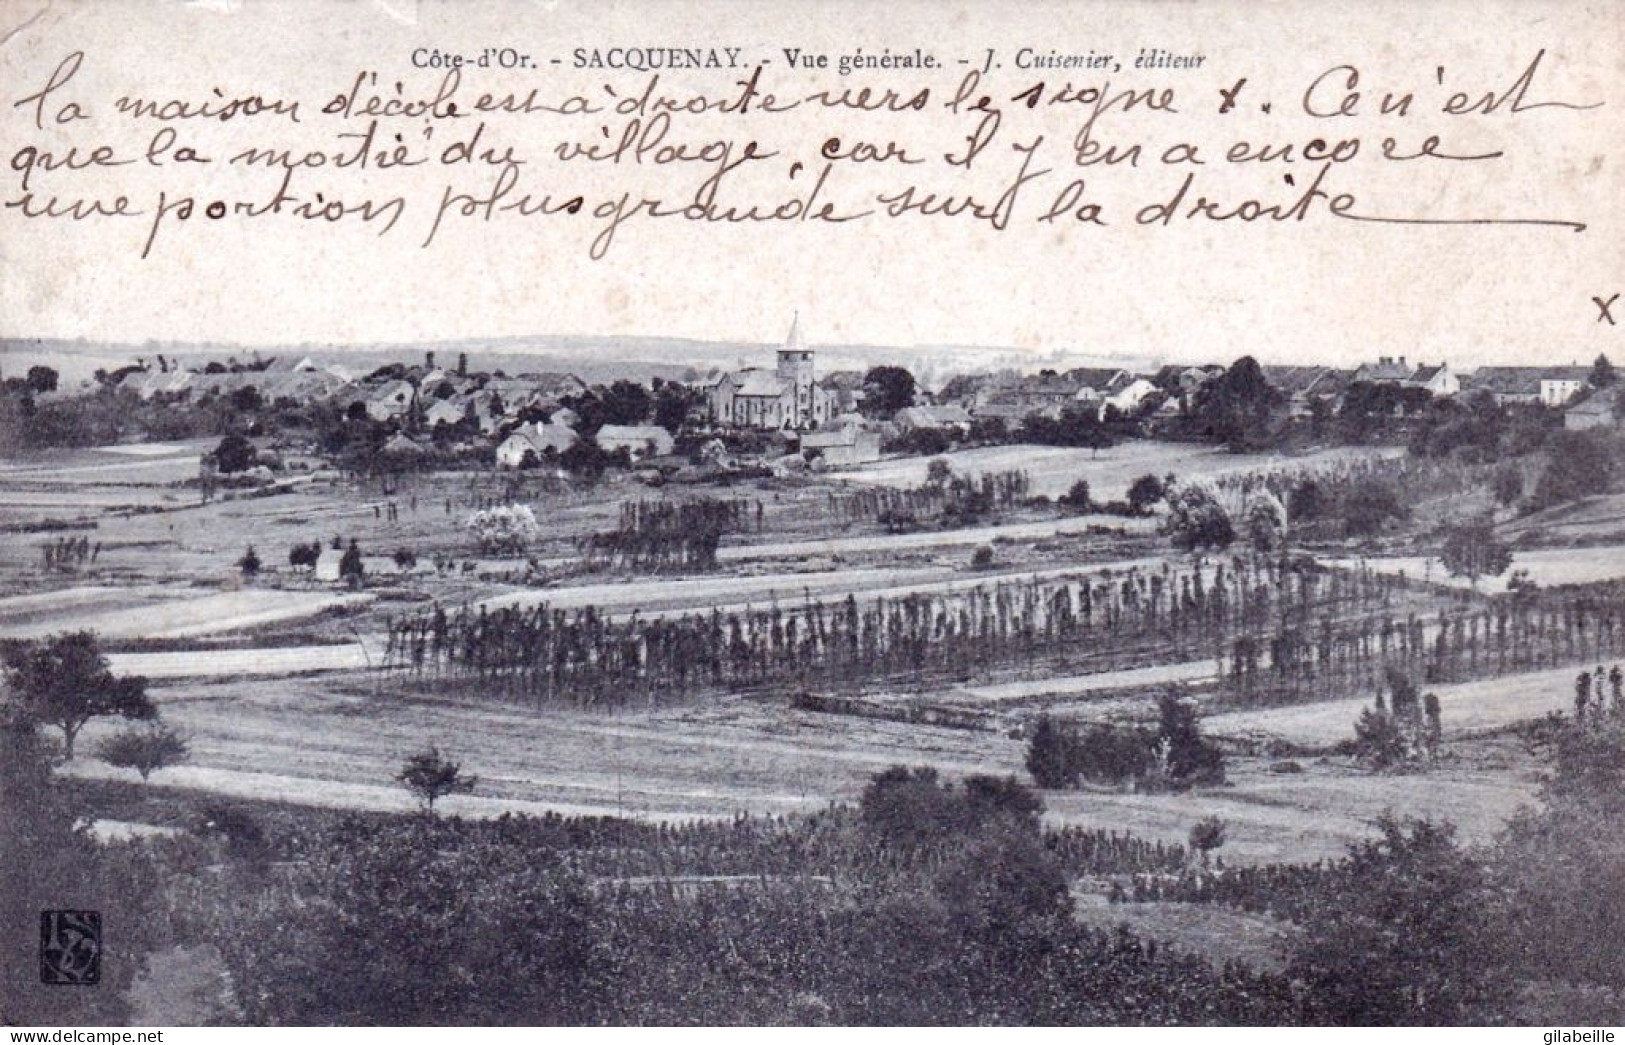 Côte-d'Or. - SACQUENAY. - Vue générale. - J. Cuisenier, éditeur
la maison d'école est à droite vers le signe x. Ce n'est
que la moitié du village, car il y en a encore
une portion plus grande sur la droite
x
delcampe.net
gilabeille